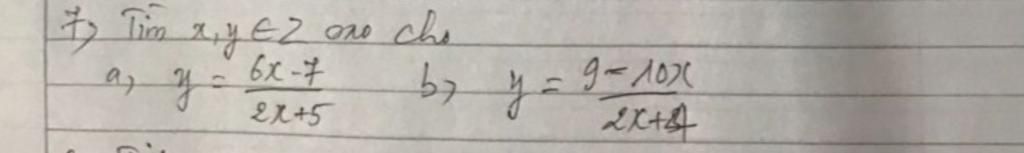 7, Tìm x, y ∈ Z sao cho
a, y = (6x-7)/(2x+5) b, y = (9-10x)/(2x+4)